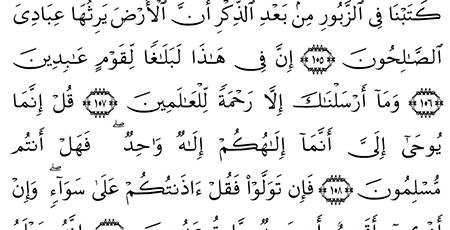 كَتَبْنَا فِى ٱلزَّبُورِ مِنۢ بَعْدِ ٱلذِّكْرِ أَنَّ ٱلْأَرْضَ يَرِثُهَا عِبَادِىَ
ٱلصَّـٰلِحُونَ ١٠٥ إِنَّ فِى هَـٰذَا لَبَلَـٰغًا لِّقَوْمٍ عَـٰبِدِينَ
١٠٦ وَمَآ أَرْسَلْنَـٰكَ إِلَّا رَحْمَةً لِّلْعَـٰلَمِينَ ١٠٧ قُلْ إِنَّمَا
يُوحَىٰٓ إِلَىَّ أَنَّمَآ إِلَـٰهُكُمْ إِلَـٰهٌ وَٰحِدٌ ۖ فَهَلْ أَنتُم
مُّسْلِمُونَ ١٠٨ فَإِن تَوَلَّوْا۟ فَقُلْ ءَاذَنتُكُمْ عَلَىٰ سَوَآءٍ ۖ وَإِنْ